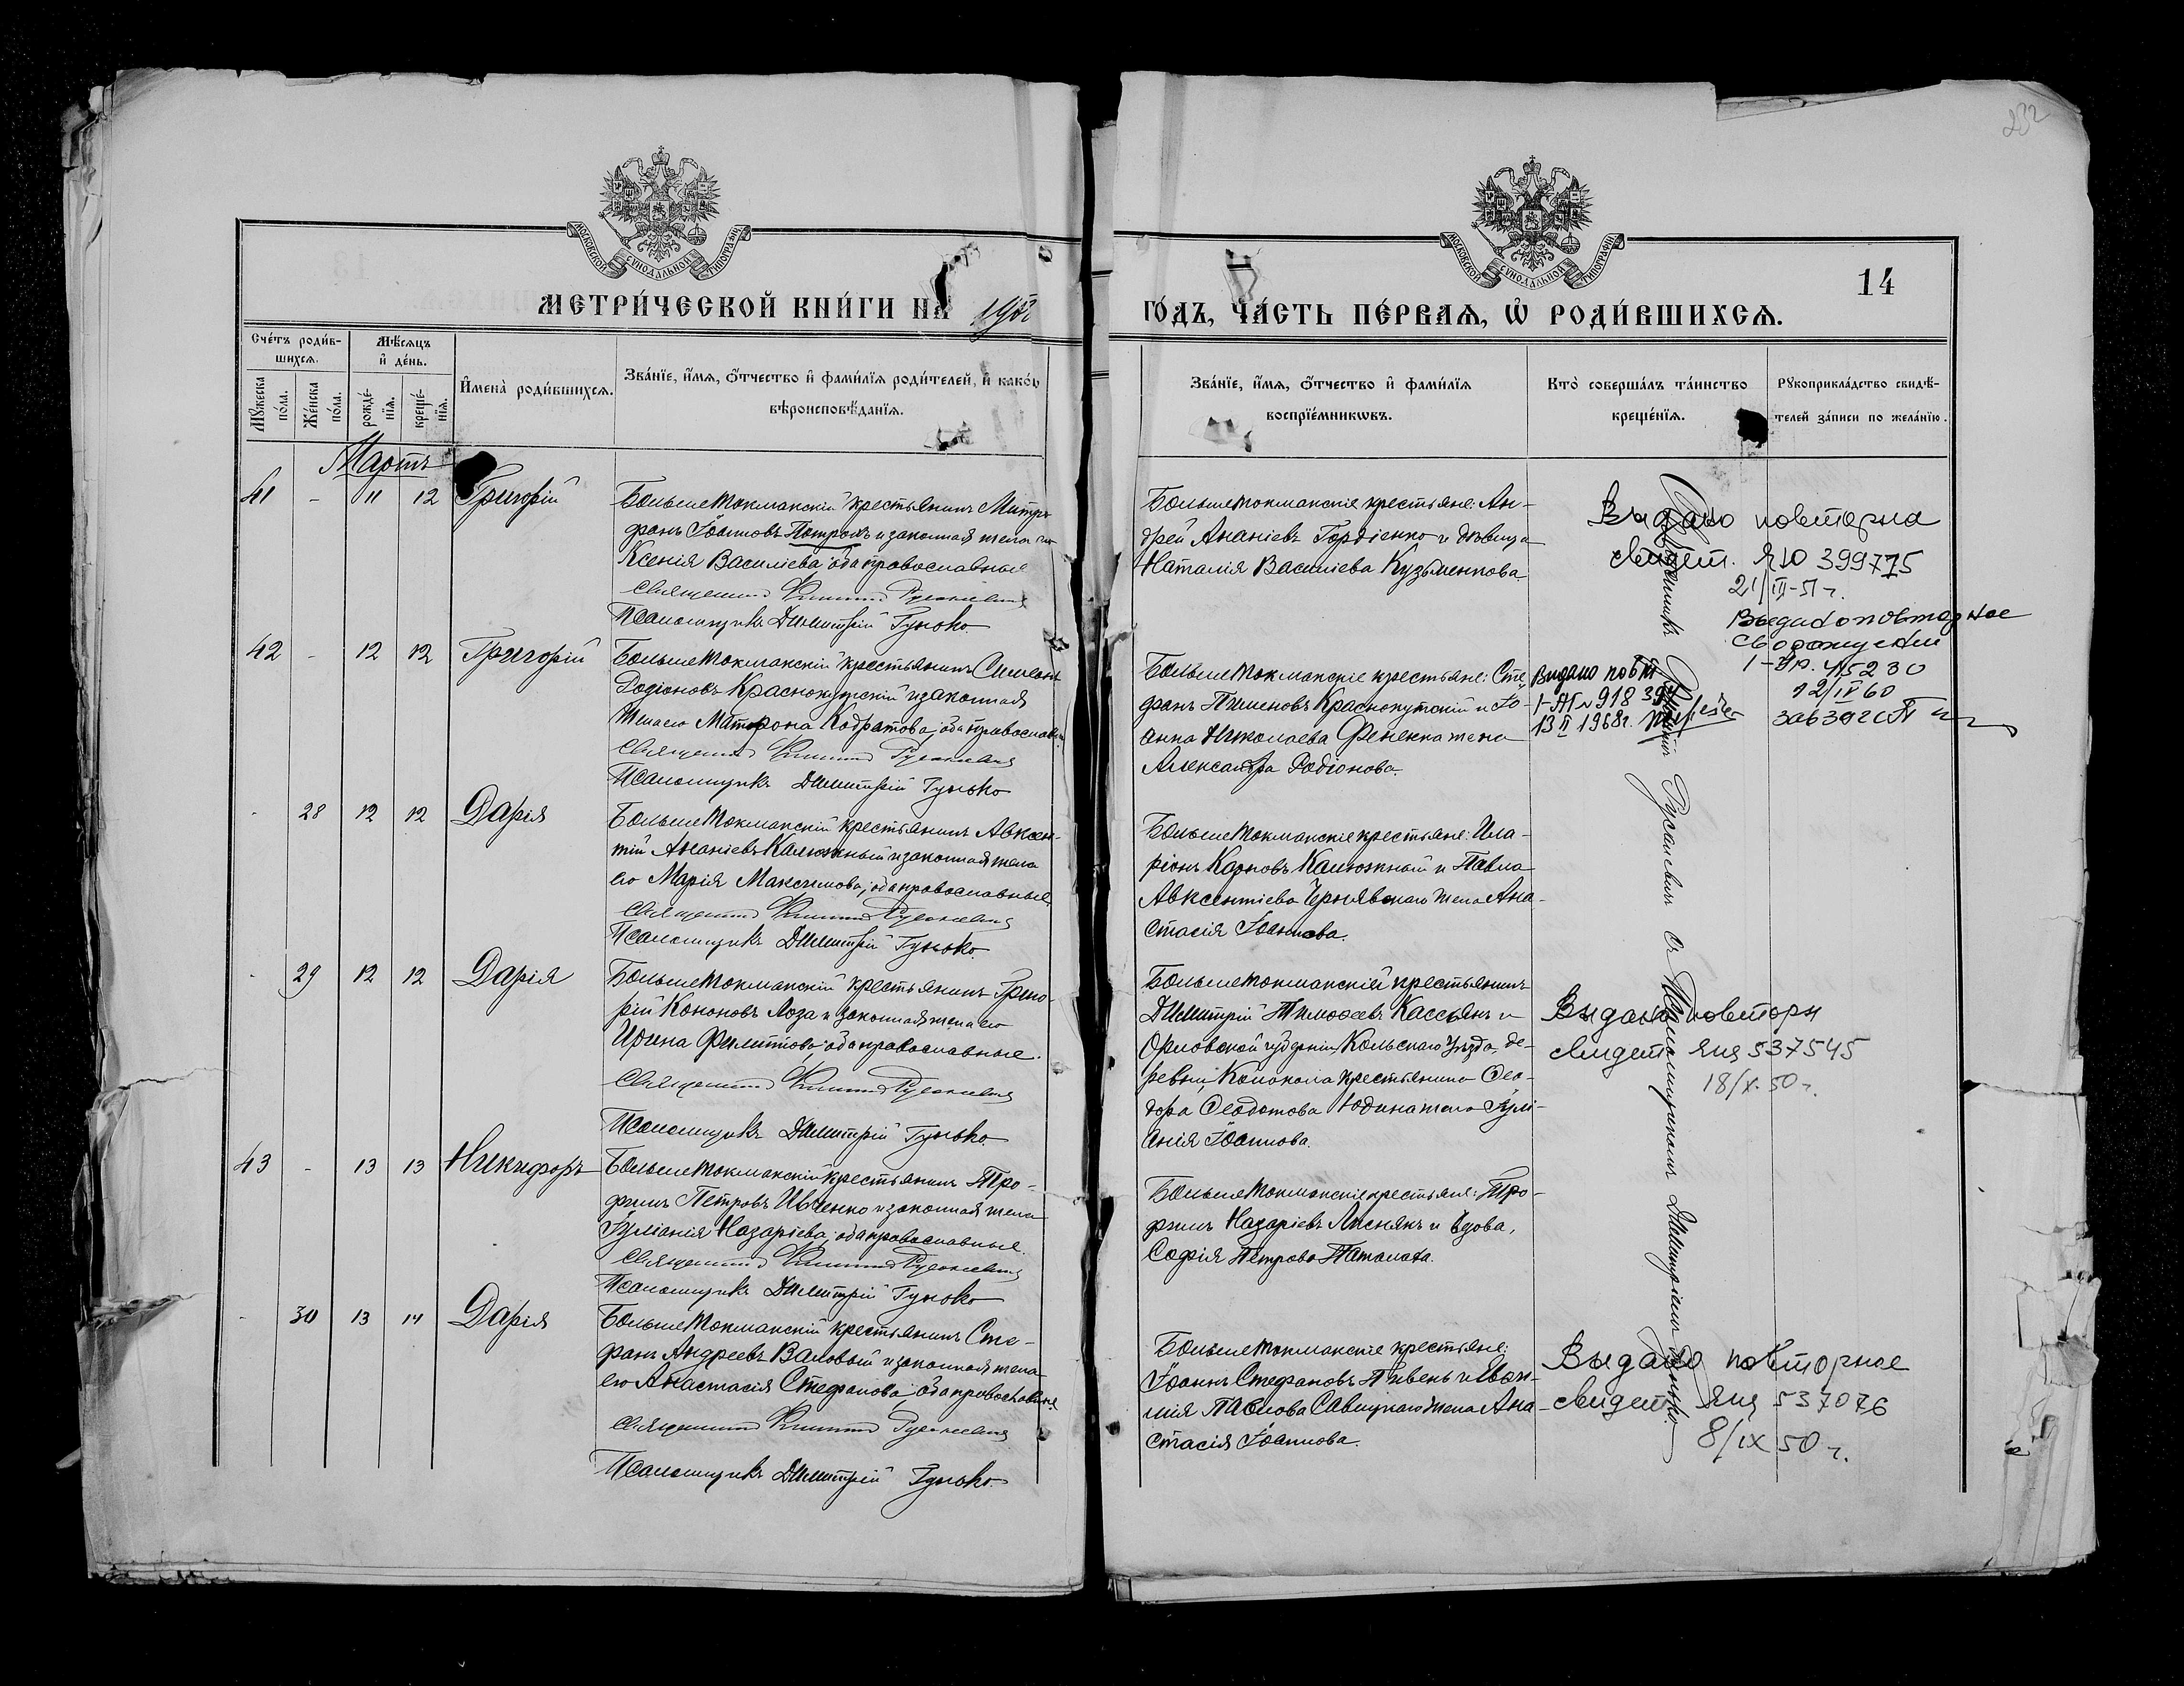 232
14
МОСКОВСКОЙ СѴНОДАЛЬНОЙ ТИПОГРАФІИ
МОСКОВСКОЙ СѴНОДАЛЬНОЙ ТИПОГРАФІИ
МЕТРИ́ЧЕСКОЙ КНИ́ГИ НА
ГО́ДЪ, ЧА́СТЬ ПЕ́РВАЯ, Ѽ РОДИ́ВШИХСЯ.
Сче́тъ роди́в-
шихся.
Мѣ́сяцъ
и҆ де́нь.
Мꙋ́жеска по́ла.
Же́нска по́ла.
рожде́-нїѧ.
креще́-нїѧ.
И҆мена̀ роди́вшихсѧ.
Зва́нїе, и҆́мѧ, ѻ҆́тчество и҆ фами́лїѧ роди́телей, и҆ како́гѡ
вѣроисповѣ́данїѧ.
Зва́нїе, и҆́мѧ, ѻ҆́тчество и҆ фами́лїѧ
воспрїе́мникѡвъ.
Кто̀ соверша́лъ та́инство
креще́нїѧ.
Рꙋкоприкла́дство свидѣ́-
телей за́писи по жела́нїю.
Мартъ
41 - 11 12 Григорій
Большетокмакскій крестьянинъ Митро
фанъ Іоанновъ и законная жена его
Ксенія Василіева, оба православные
Священникъ
Псаломщикъ Димитрій Гунько.
Большетокмакские крестьяне: Ан-
дрей Ананіевъ Гордіенко и дѣвица
Наталія Василіева Кузьменкова
Выдано повторна
свидет. ЯЮ 399775
21/III-51 г.
42 - 12 12 Григорій
Большетокмакскій крестьянинъ Симеонъ
Родіоновъ Краснокутскій и законная
жена его Матрона Кодратова, оба православн.
Священникъ
Псаломщикъ Димитрій Гунько
Большетокмакские крестьяне: Сте-
фанъ Пименовъ Краснокутскій и Іо-
анна Николаева Фененка жена
Александра Родіонова.
Видано повт
13 II 1968г.
Выдано повторное
12/IV 60
- 28 12 12 Дарія
Большетокмакскій крестьянинъ Авксен-
тій Ананіевъ Калюжный и законная жена
его Марія Максимова, оба православные.
Священникъ
Псаломщикъ Димитрій Гунько.
Большетокмакские крестьяне: Ила-
ріонъ Карповъ Калюжный и Павла
Авксентіева Чернявскаго жена Ана-
стасія Іоаннова.
- 29 12 12 Дарія
Большетокмакскій крестьянинъ Григо-
рій Кононовъ Лоза и законная жена его
Ирина Филиппова, оба православные.
Священникъ
Псаломщикъ Димитрій Гунько.
Большетокмакскій крестьянинъ
Димитрій Тимоѳеевъ Кассьянъ и
Орловской губерніи, уѣзда, де-
ревни крестьянина Ѳео-
дора Ѳеодотова Юдина жена Іулі-
анія Іоаннова.
Выдано повторн
свидет. ЯЦ 537545
18/X. 50 г.
43 - 13 13 Никифоръ
Большетокмакскій крестьянинъ Тро-
фимъ Петровъ Ивченко и законная жена
Іуліанія Назаріева, оба православные.
Священникъ
Псаломщикъ Димитрій Гунько
Большетокмакские крестьяне: Тро-
фимъ Назаріевъ Лиснякъ и вдова,
Софія Петрова
- 30 13 14 Дарія
Большетокмакскій крестьянинъ Сте-
фанъ Андреевъ Валовый и законная жена
его Анастасія Стефанова, оба православные
Священникъ
Псаломщикъ Димитрій Гунько.
Большетокмакские крестьяне:
Іоаннъ Стефановъ Пивень и Иван-
ния Павлова Савицкаго жена Ана-
стасія Іоаннова.
Выдано повторное
свидет. ЯЦ 537076
8/IX 50 г.
съ Псаломщикомъ Димитріемъ Гунько.